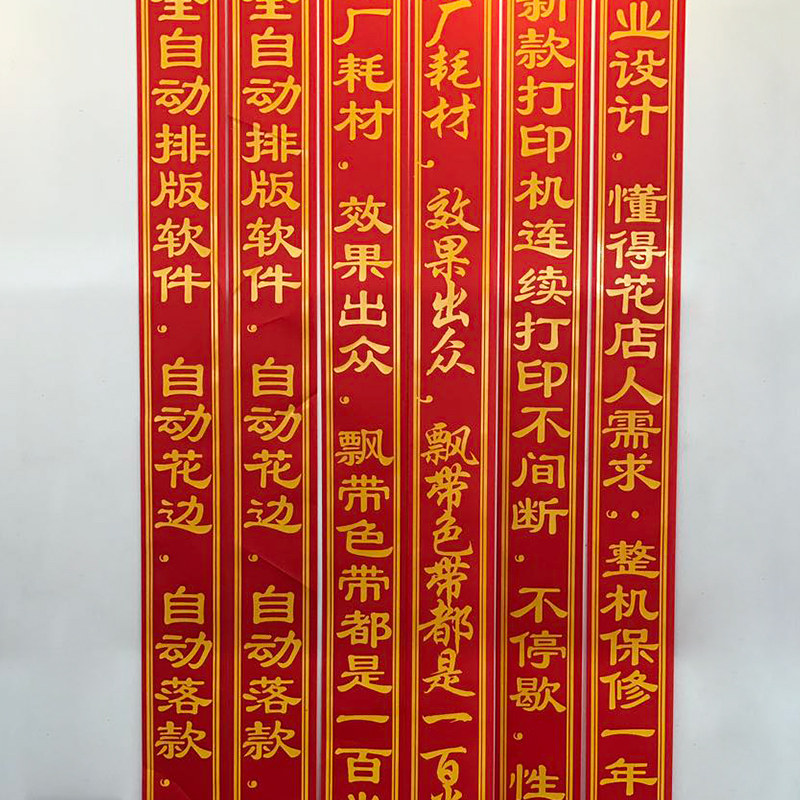 业设计，懂得花店人需求，··整机保修一年
新款打印机连续打印不间断，不停歇，性
厂耗材，效果出众，飘带色带都是一百
厂耗材，效果出众，飘带色带都是一百
全自动排版软件，自动花边，自动落款，
全自动排版软件，自动花边，自动落款，